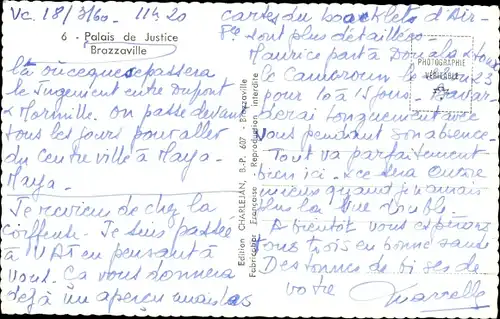 Vc. 18/3/60. 11h20
6 - Palais de Justice
Brazzaville
là où ce que se passera
le Jugement entre Dupont
& Mormille. On passe devant
tous les jours pour aller
du centre ville à Maya-
Maya.
Je reviens de chez la
coiffeuse. Je suis passée
à l'UAT en pensant à
vous. Ça vous donnera
déjà un aperçu mais les
Edition CHARLEJAN, B.-P. 607 - Brazzaville
Fabrication Française - Reproduction Interdite
PHOTOGRAPHIE
VÉRITABLE
cartes du
sont plus détaillées
Maurice part à Douala & tout
le Cameroun le 23
pour 10 à 15 jours. Bavar-
derai longuement avec
vous pendant son absence.
Tout va parfaitement
bien ici. & ce sera encore
mieux quand je n'aurais
plus la vue trouble.
A bientôt vous espérons
tous trois en bonne santé
Des tonnes de bises de
votre Marcelle